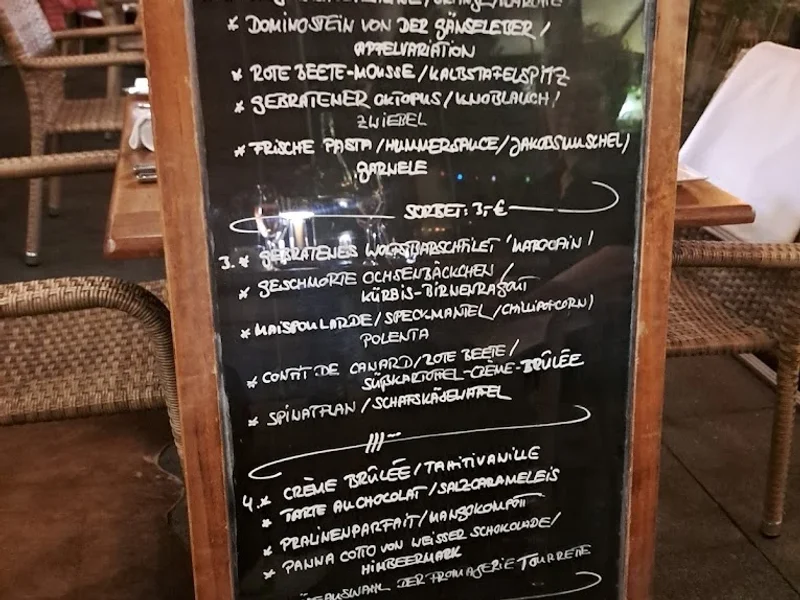 * DOMINOSTEIN VON DER GÄNSELEBER /
APFELVARIATION
* ROTE BEETE-MOUSSE/KALBSTAFELSPITZ
* GEBRATENER OKTOPUS/KNOBLAUCH/
ZWIEBEL
* FRISCHE PASTA/HUMMERSAUCE/JAKOBSMUSCHEL/
GARNELE
SORBET: 3,-€
3. * GEBRATENES WOLFSBARSCHFILET
* GESCHMORTE OCHSENBÄCKCHEN/
KÜRBIS-BIRNENRAGOUT
* MAISPOULARDE/SPECKMANTEL/CHILLIPOPCORN/
POLENTA
* CONFIT DE CANARD/ROTE BEETE/
SÜßKARTOFFEL-CRÈME-BRÛLÉE
* SPINATFLAN/SCHAFSKÄSEWAFFEL
4. * CRÈME BRÛLÉE/TAHITIVANILLE
* TARTE AU CHOCOLAT/SALZCARAMELEIS
* PRALINENPARFAIT/MANGOKOMPOTT
* PANNA COTTO VON WEISSER SCHOKOLADE/
HIMBEERMARK
DER FROMAGERIE TOURRETE